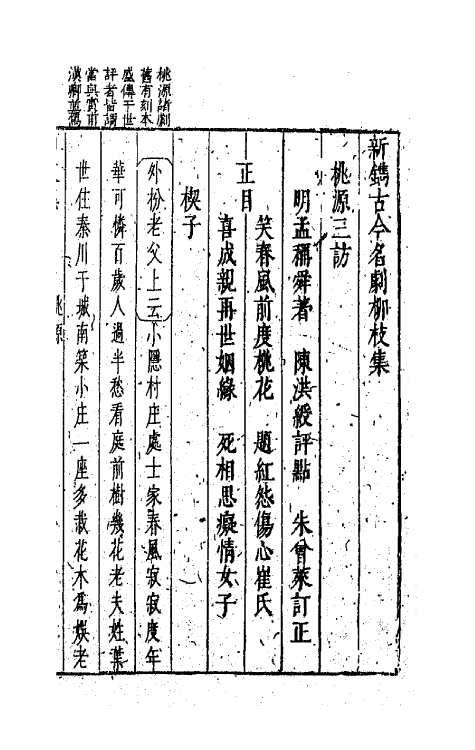 新鐫古今名劇柳枝集
桃源三訪
明孟稱舜著　陳洪綬評點　朱曾萊訂正
正目
笑春風前度桃花　題紅怨傷心崔氏
喜成親再世姻緣　死相思癡情女子
楔子
外扮老父上云小隱村庄處士家春風寂寂度年
華可憐百歲人過半愁看庭前樹幾花老夫姓葉
世住秦川于城南築小庄一座多栽花木爲娛老
桃源
桃源諸劇
舊有刻本
盛傳于世
評者皆謂
當與實甫
漢卿並駕